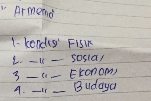 Armenia
1. kondisi Fisik
2. -"- Sosial
3 -"- Ekonomi
4. -"- Budaya